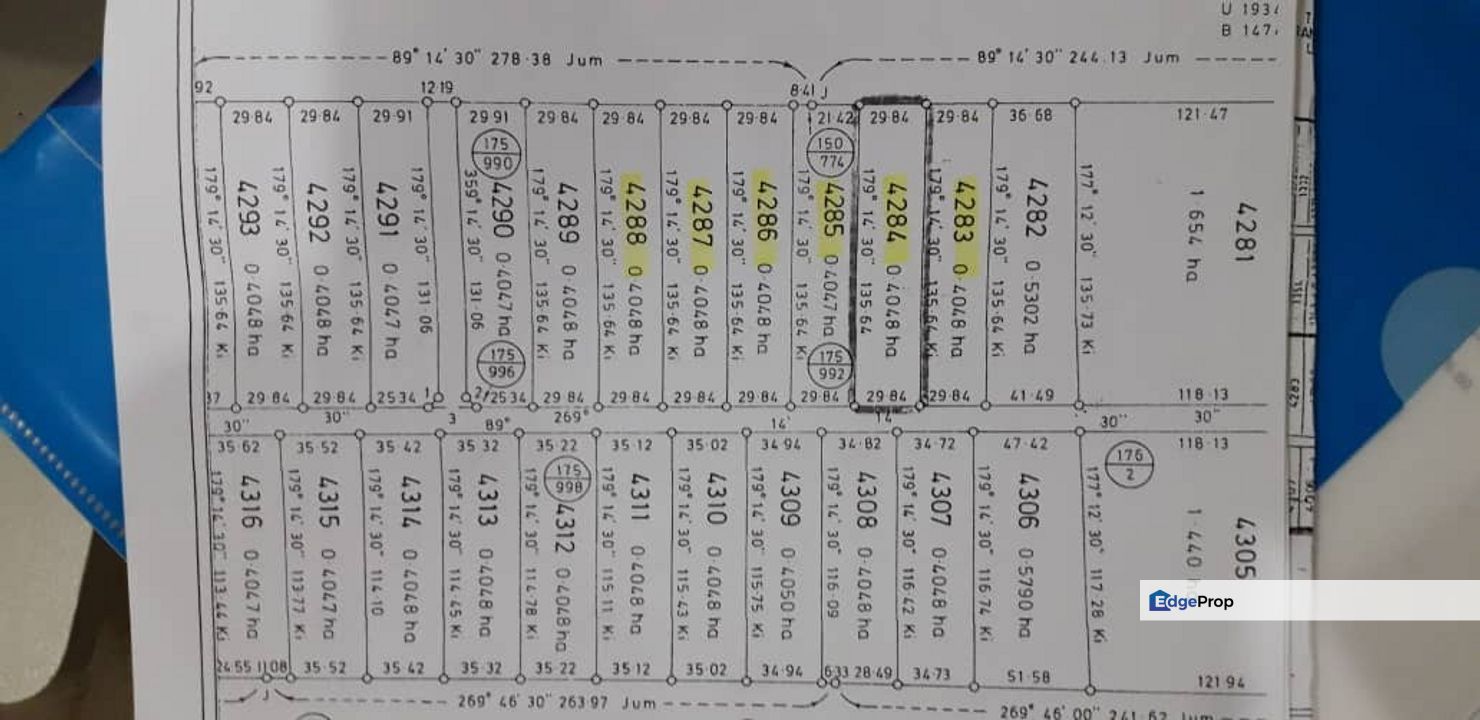 U 193
B 147
89° 14' 30" 278·38 Jum
89° 14' 30" 244·13 Jum
92
12·19
8·41 J
29·84
29·84
29·91
29·91
29·84
29·84
29·84
29·84
21·42
29·84
29·84
36·68
121·47
175
990
150
774
179° 14' 30" 135·64 Ki
4293 0·4048 ha
179° 14' 30" 135·64 Ki
4292 0·4048 ha
179° 14' 30" 135·64 Ki
4291 0·4047 ha
179° 14' 30" 131·06
359° 14' 30" 131·06
4290 0·4047 ha
179° 14' 30" 135·64 Ki
4289 0·4048 ha
179° 14' 30" 135·64 Ki
4288 0·4048 ha
179° 14' 30" 135·64 Ki
4287 0·4048 ha
179° 14' 30" 135·64 Ki
4286 0·4048 ha
179° 14' 30" 135·64 Ki
4285 0·4047 ha
179° 14' 30" 135·64
4284 0·4048 ha
179° 14' 30" 135·64 Ki
4283 0·4048 ha
179° 14' 30" 135·64 Ki
4282 0·5302 ha
177° 12' 30" 135·73 Ki
1·654 ha
4281
175
996
175
992
37
29·84
29·84
25·34
1
2
25·34
29·84
29·84
29·84
29·84
29·84
29·84
29·84
41·49
118·13
30"
30"
3
89°
269°
14'
14'
30"
30"
35·62
35·52
35·42
35·32
35·22
35·12
35·02
34·94
34·82
34·72
47·42
118·13
175
998
176
2
179° 14' 30" 113·44 Ki
4316 0·4047 ha
179° 14' 30" 113·77 Ki
4315 0·4047 ha
179° 14' 30" 114·10
4314 0·4048 ha
179° 14' 30" 114·45 Ki
4313 0·4048 ha
179° 14' 30" 114·78 Ki
4312 0·4048 ha
179° 14' 30" 115·11 Ki
4311 0·4048 ha
179° 14' 30" 115·43 Ki
4310 0·4048 ha
179° 14' 30" 115·75 Ki
4309 0·4050 ha
179° 14' 30" 116·09
4308 0·4048 ha
179° 14' 30" 116·42 Ki
4307 0·4048 ha
179° 14' 30" 116·74 Ki
4306 0·5790 ha
177° 12' 30" 117·28 Ki
1·440
4305
EdgeProp
24·55
11·08
35·52
35·42
35·32
35·22
35·12
35·02
34·94
6·33
28·49
34·73
51·58
121·94
J
269° 46' 30" 263·97 Jum
269° 46' 00" 241·62 Jum